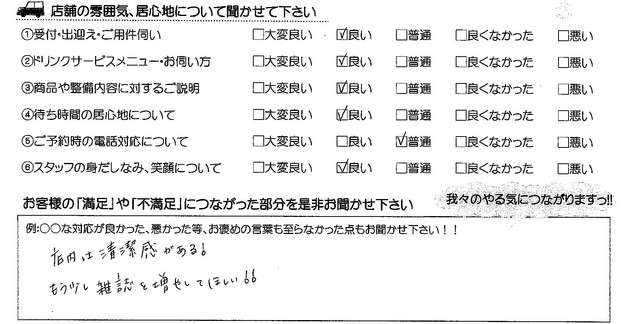 店舗の雰囲気、居心地について聞かせて下さい
①受付・出迎え・ご用件伺い □大変良い ☑良い □普通 □良くなかった □悪い
②ドリンクサービスメニュー・お伺い方 □大変良い ☑良い □普通 □良くなかった □悪い
③商品や整備内容に対するご説明 □大変良い ☑良い □普通 □良くなかった □悪い
④待ち時間の居心地について □大変良い ☑良い □普通 □良くなかった □悪い
⑤ご予約時の電話対応について □大変良い □良い ☑普通 □良くなかった □悪い
⑥スタッフの身だしなみ、笑顔について □大変良い ☑良い □普通 □良くなかった □悪い
お客様の「満足」や「不満足」につながった部分を是非お聞かせ下さい 我々のやる気につながりますっ!!
例:○○な対応が良かった、悪かった等、お褒めの言葉も至らなかった点もお聞かせ下さい!!
店内は清潔感がある!
もう少し雑誌を増やしてほしい!!